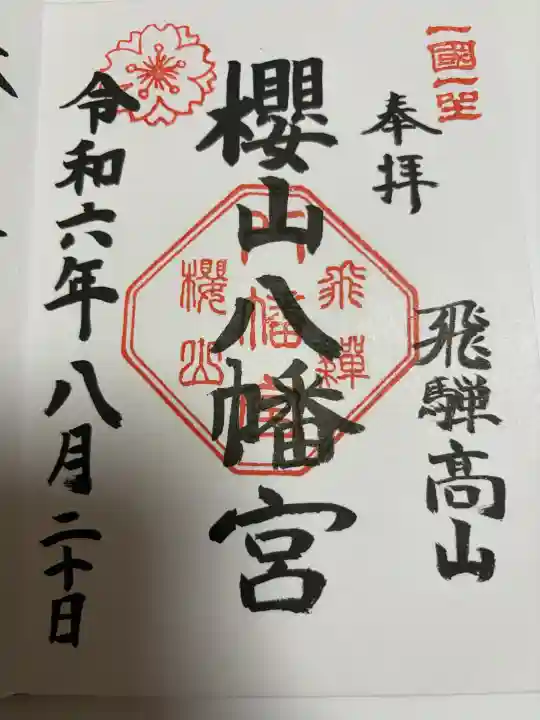 一國一社
奉拝
飛騨高山
櫻山八幡宮
飛騨
八幡宮
櫻山
令和六年八月二十日